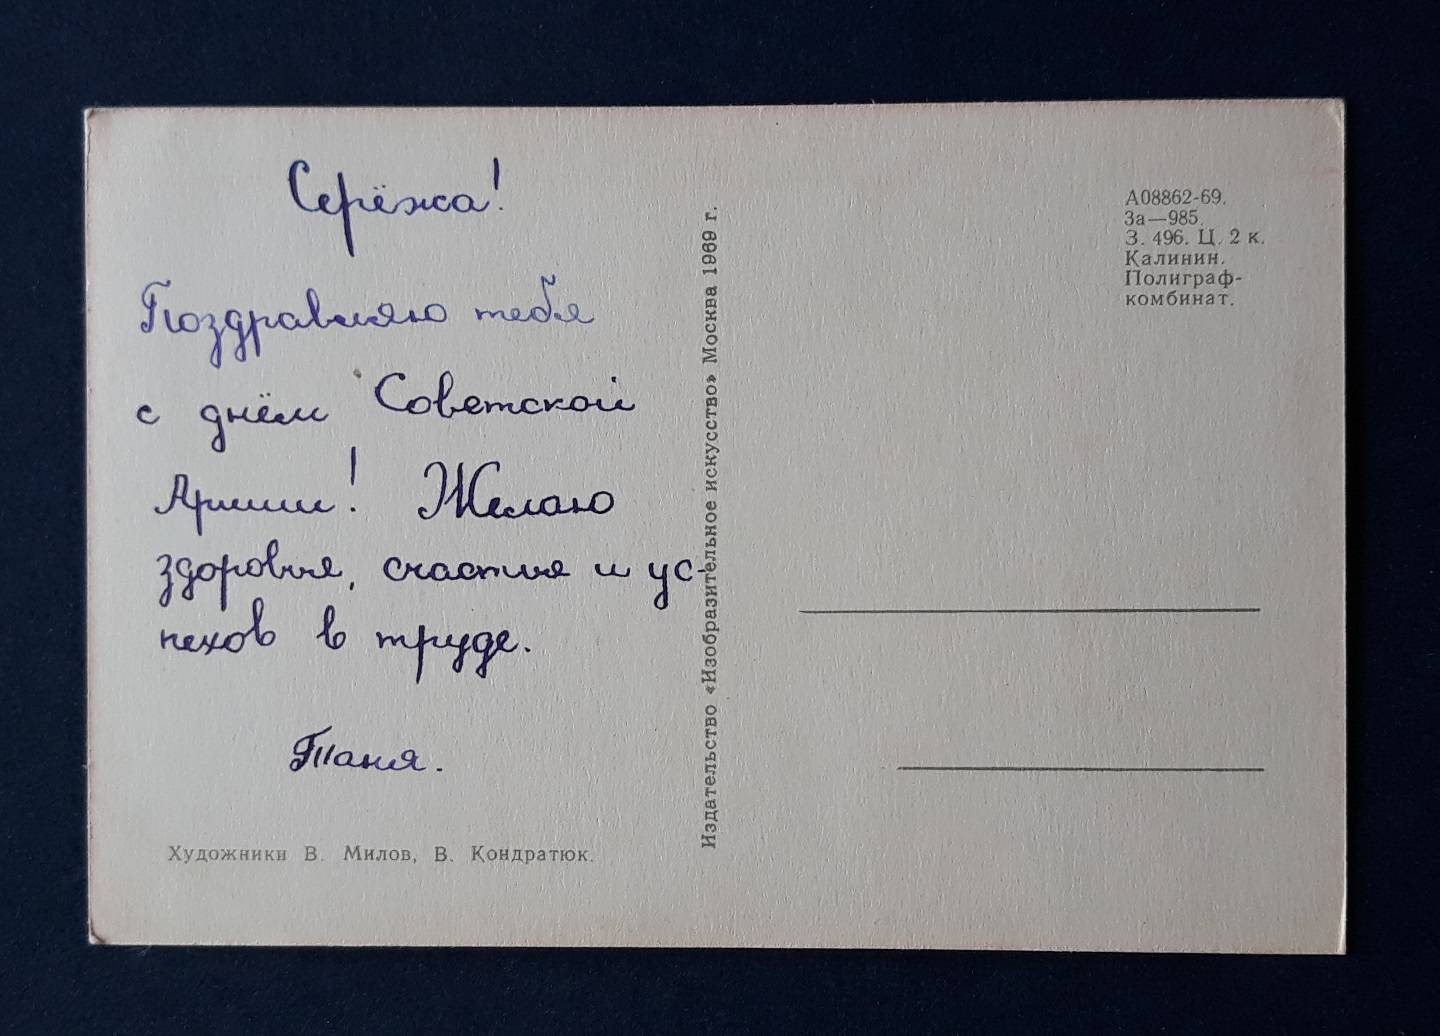 Серёжа!
Поздравляю тебя
с днём Советской
Армии! Желаю
здоровья, счастья и ус-
пехов в труде.
Таня.
Художники В. Милов, В. Кондратюк.
Издательство «Изобразительное искусство» Москва 1969 г.
А08862-69.
За—985.
З. 496. Ц. 2 к.
Калинин.
Полиграф-
комбинат.